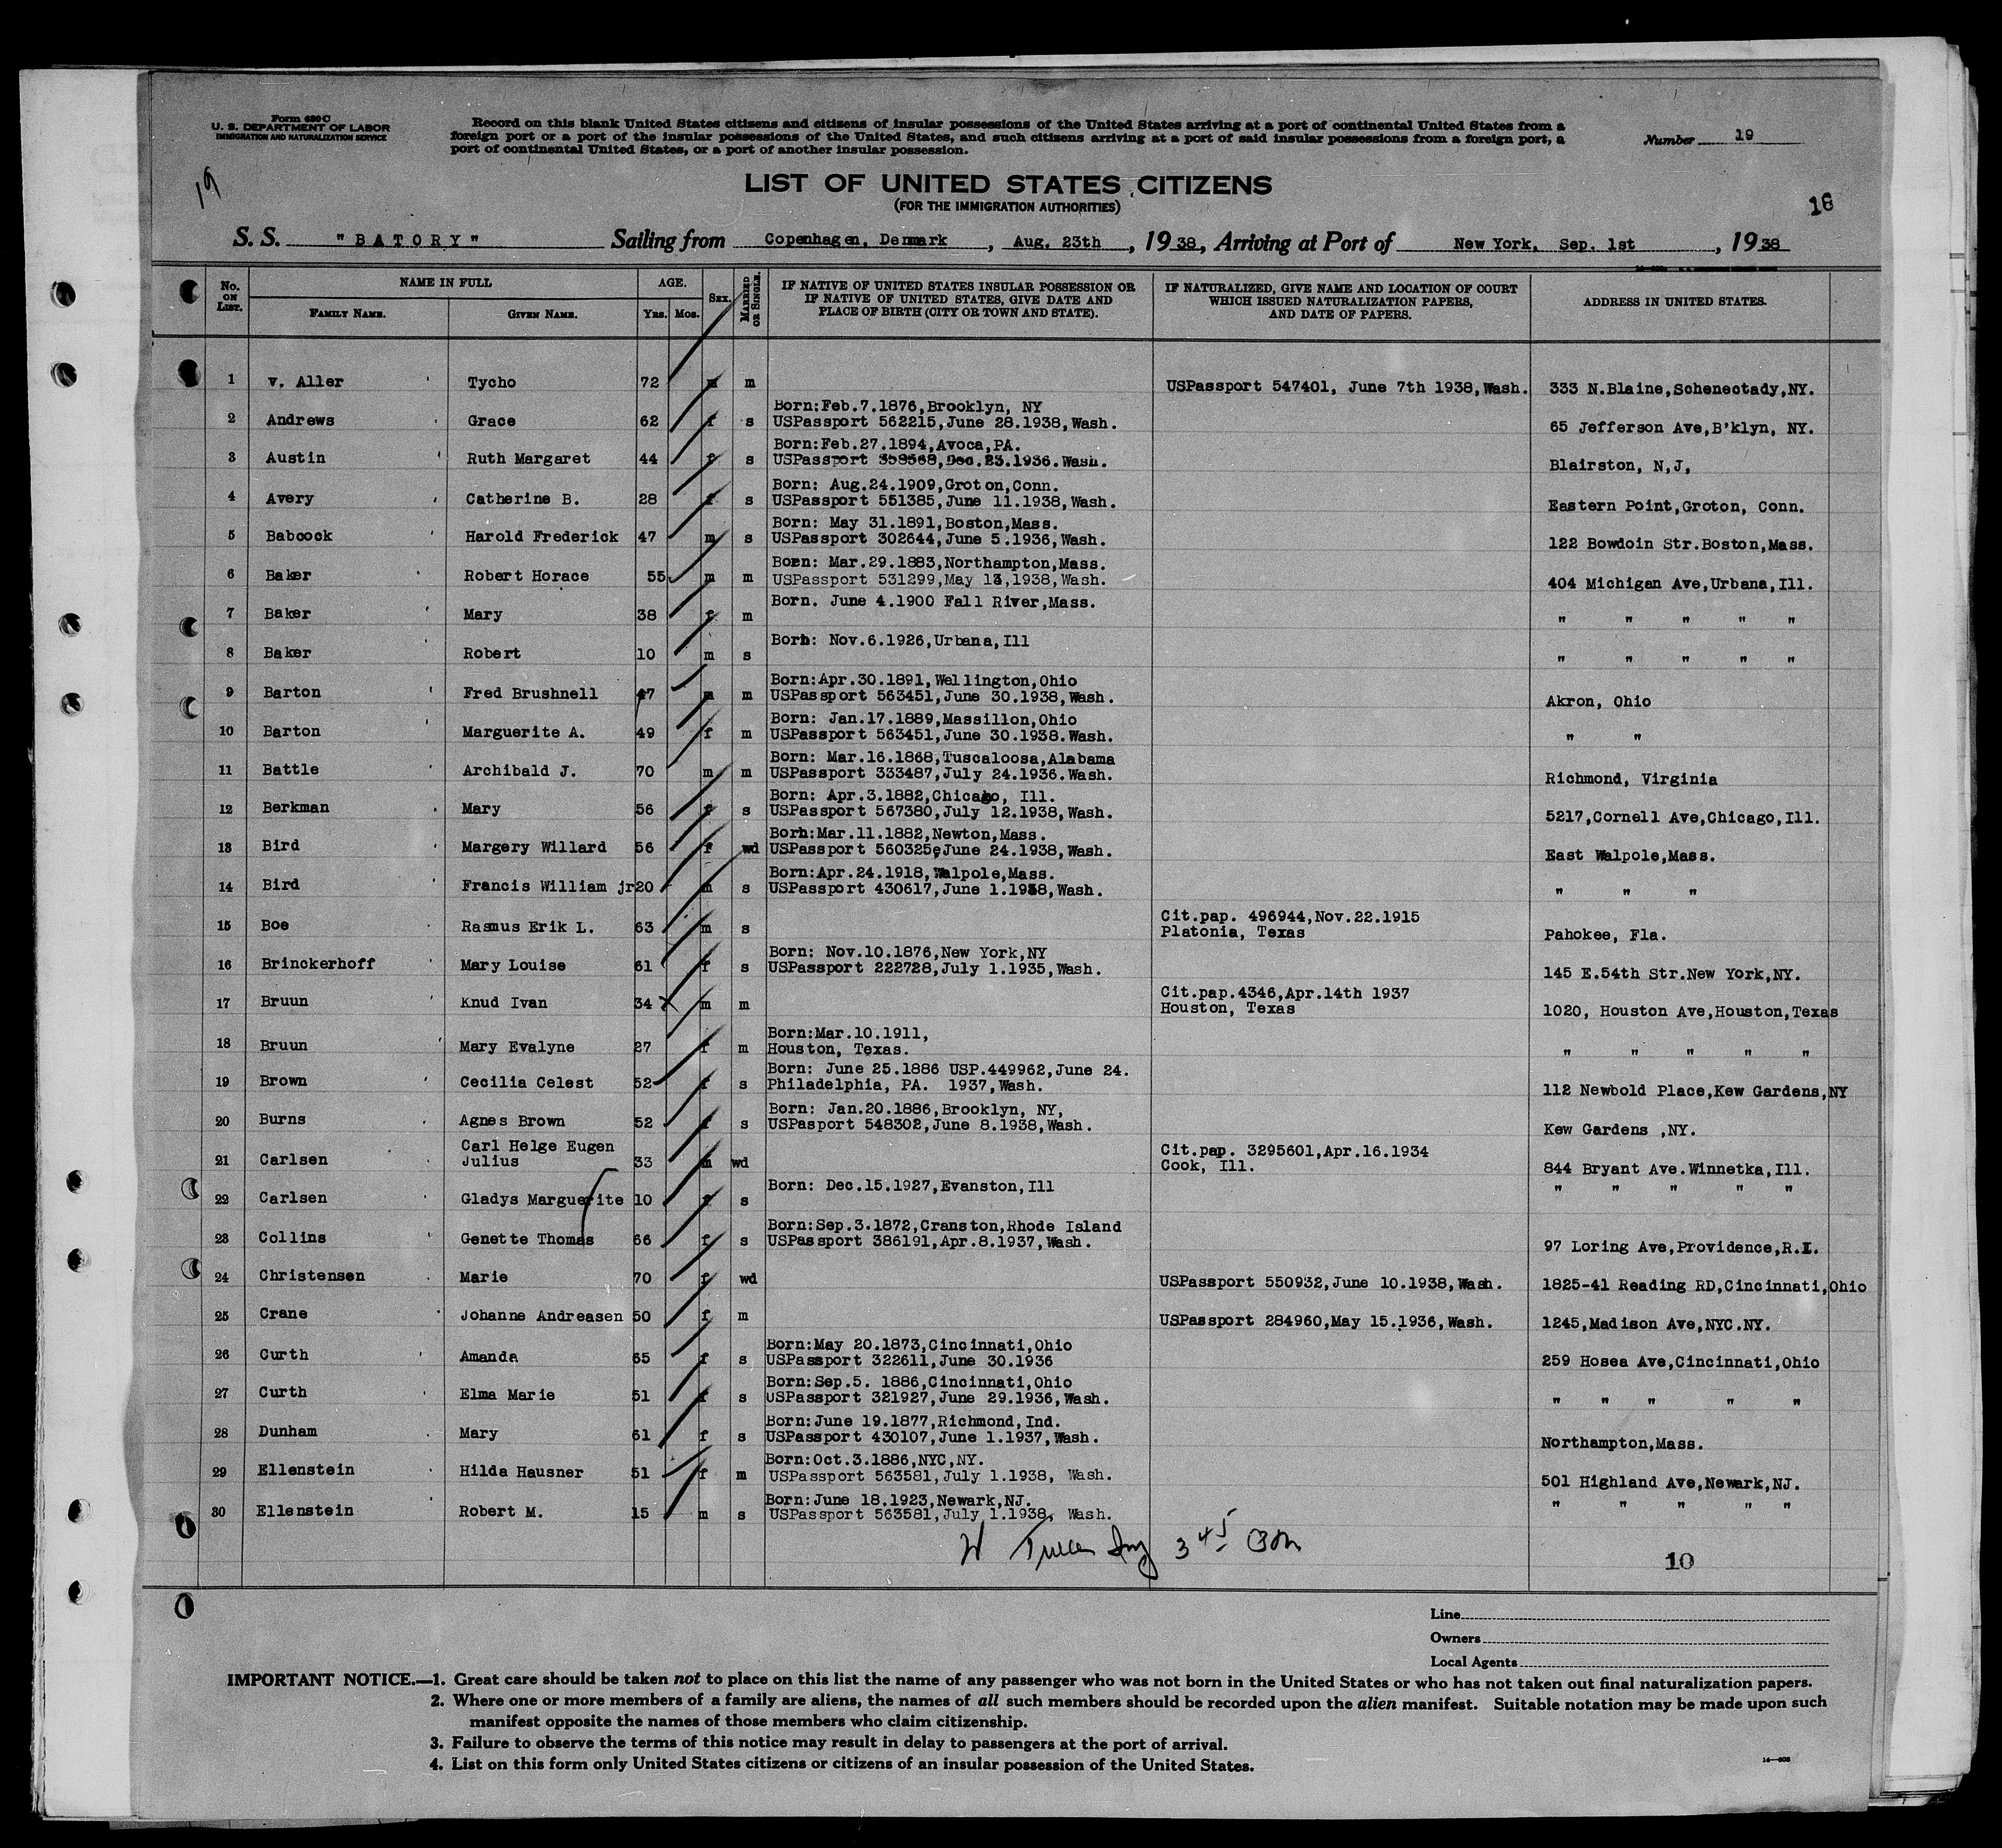 Form 630 C
U. S. DEPARTMENT OF LABOR
IMMIGRATION AND NATURALIZATION SERVICE
Record on this blank United States citizens and citizens of insular possessions of the United States arriving at a port of continental United States from a
foreign port or a port of the insular possessions of the United States, and such citizens arriving at a port of said insular possessions from a foreign port, a
port of continental United States, or a port of another insular possession.
Number 19
19
LIST OF UNITED STATES CITIZENS
(FOR THE IMMIGRATION AUTHORITIES)
18
S. S. "BATORY" Sailing from Copenhagen, Denmark, Aug. 23th, 1938, Arriving at Port of New York, Sep. 1st, 1938
No. ON LIST. NAME IN FULL FAMILY NAME. GIVEN NAME. AGE. YRS. MOS. SEX. MARRIED OR SINGLE. IF NATIVE OF UNITED STATES INSULAR POSSESSION OR IF NATIVE OF UNITED STATES, GIVE DATE AND PLACE OF BIRTH (CITY OR TOWN AND STATE). IF NATURALIZED, GIVE NAME AND LOCATION OF COURT WHICH ISSUED NATURALIZATION PAPERS, AND DATE OF PAPERS. ADDRESS IN UNITED STATES.
1 v. Aller Tycho 72 m m USPassport 547401, June 7th 1938,Wash. 333 N.Blaine,Schenectady,NY.
2 Andrews Grace 62 f s Born:Feb.7.1876,Brooklyn, NY
USPassport 562215,June 28.1938,Wash. 65 Jefferson Ave,B'klyn, NY.
3 Austin Ruth Margaret 44 f s Born:Feb.27.1894,Avoca,PA.
USPassport 358568,Dec.23.1936.Wash. Blairston, N,J,
4 Avery Catherine B. 28 f s Born: Aug.24.1909,Groton,Conn.
USPassport 551385,June 11.1938,Wash. Eastern Point,Groton, Conn.
5 Babcock Harold Frederick 47 m s Born: May 31.1891,Boston,Mass.
USPassport 302644,June 5.1936,Wash. 122 Bowdoin Str.Boston,Mass.
6 Baker Robert Horace 55 m m Born: Mar.29.1883,Northampton,Mass.
USPassport 531299,May 13,1938,Wash. 404 Michigan Ave,Urbana,Ill.
7 Baker Mary 38 f m Born. June 4.1900 Fall River,Mass. " " " " "
8 Baker Robert 10 m s Born: Nov.6.1926,Urbana,Ill " " " " "
9 Barton Fred Brushnell 47 m m Born:Apr.30.1891,Wellington,Ohio
USPassport 563451,June 30.1938,Wash. Akron, Ohio
10 Barton Marguerite A. 49 f m Born: Jan.17.1889,Massillon,Ohio
USPassport 563451,June 30.1938.Wash. " "
11 Battle Archibald J. 70 m m Born: Mar.16.1868,Tuscaloosa,Alabama
USPassport 333487,July 24.1936.Wash. Richmond, Virginia
12 Berkman Mary 56 f s Born: Apr.3.1882,Chicago, Ill.
USPassport 567380,July 12.1938,Wash. 5217,Cornell Ave,Chicago,Ill.
13 Bird Margery Willard 56 f wd Born:Mar.11.1882,Newton,Mass.
USPassport 560325,June 24.1938,Wash. East Walpole,Mass.
14 Bird Francis William jr 20 m s Born:Apr.24.1918,Walpole,Mass.
USPassport 430617,June 1.1938,Wash. " " "
15 Boe Rasmus Erik L. 63 m s Cit.pap. 496944,Nov.22.1915
Platonia, Texas Pahokee, Fla.
16 Brinckerhoff Mary Louise 61 f s Born: Nov.10.1876,New York,NY
USPassport 222728,July 1.1935,Wash. 145 E.54th Str.New York,NY.
17 Bruun Knud Ivan 34 m m Cit.pap.4346,Apr.14th 1937
Houston, Texas 1020, Houston Ave,Houston,Texas
18 Bruun Mary Evalyne 27 f m Born:Mar.10.1911,
Houston, Texas. " " " " "
19 Brown Cecilia Celest 52 f s Born: June 25.1886 USP.449962,June 24.
Philadelphia, PA. 1937,Wash. 112 Newbold Place,Kew Gardens,NY
20 Burns Agnes Brown 52 f s Born: Jan.20.1886,Brooklyn, NY,
USPasport 548302,June 8.1938,Wash. Kew Gardens ,NY.
21 Carlsen Carl Helge Eugen
Julius 33 m wd Cit.pap. 3295601,Apr.16.1934
Cook, Ill. 844 Bryant Ave.Winnetka,Ill.
22 Carlsen Gladys Marguerite 10 f s Born: Dec.15.1927,Evanston,Ill " " " " "
23 Collins Genette Thomas 66 f s Born:Sep.3.1872,Cranston,Rhode Island
USPassport 386191,Apr.8.1937,Wash. 97 Loring Ave,Providence,R.I.
24 Christensen Marie 70 f wd USPassport 550932,June 10.1938,Wash. 1825-41 Reading RD,Cincinnati,Ohio
25 Crane Johanne Andreasen 50 f m USPassport 284960,May 15.1936,Wash. 1245,Madison Ave,NYC.NY.
26 Curth Amanda 65 f s Born:May 20.1873,Cincinnati,Ohio
USPassport 322611,June 30.1936 259 Hosea Ave,Cincinnati,Ohio
27 Curth Elma Marie 51 f s Born:Sep.5. 1886,Cincinnati,Ohio
USPassport 321927,June 29.1936,Wash. " " " " "
28 Dunham Mary 61 f s Born:June 19.1877,Richmond,Ind.
USPassport 430107,June 1.1937,Wash. Northampton,Mass.
29 Ellenstein Hilda Hausner 51 f m Born:Oct.3.1886,NYC,NY.
USPassport 563581,July 1.1938, Wash. 501 Highland Ave,Newark,NJ.
30 Ellenstein Robert M. 15 m s Born:June 18.1923,Newark,NJ.
USPassport 563581,July 1.1938, Wash. " " " " "
10
Line
Owners
Local Agents
IMPORTANT NOTICE.—1. Great care should be taken not to place on this list the name of any passenger who was not born in the United States or who has not taken out final naturalization papers.
2. Where one or more members of a family are aliens, the names of all such members should be recorded upon the alien manifest. Suitable notation may be made upon such
manifest opposite the names of those members who claim citizenship.
3. Failure to observe the terms of this notice may result in delay to passengers at the port of arrival.
4. List on this form only United States citizens or citizens of an insular possession of the United States.